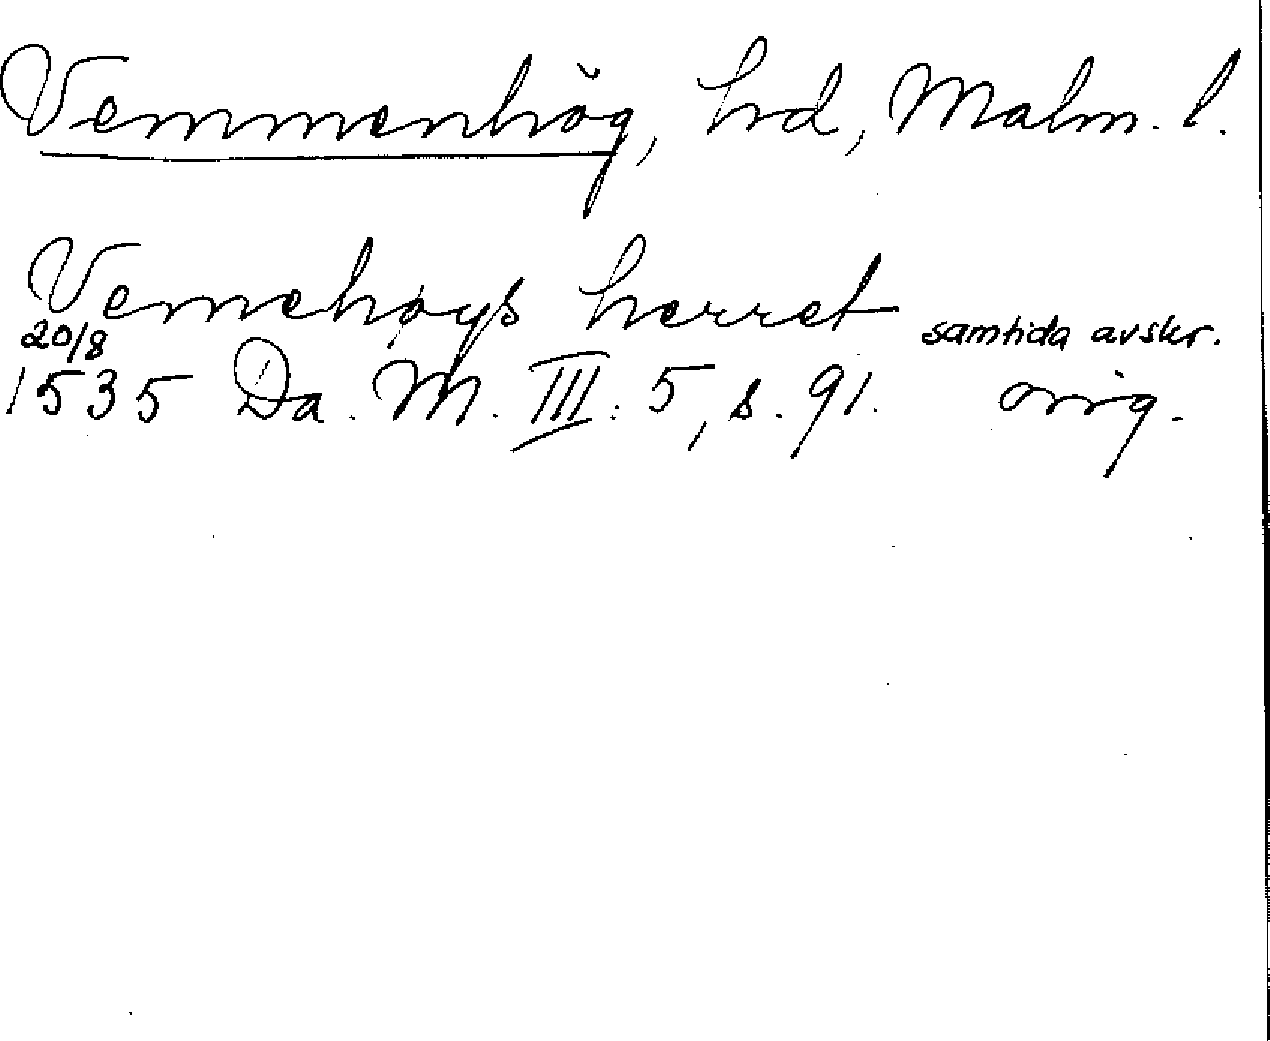 Vemmenhög, hd, Malm. l.
Vemehøys herret samtida avskr.
20/8
1535 Da. M. III: 5, s. 91. orig.